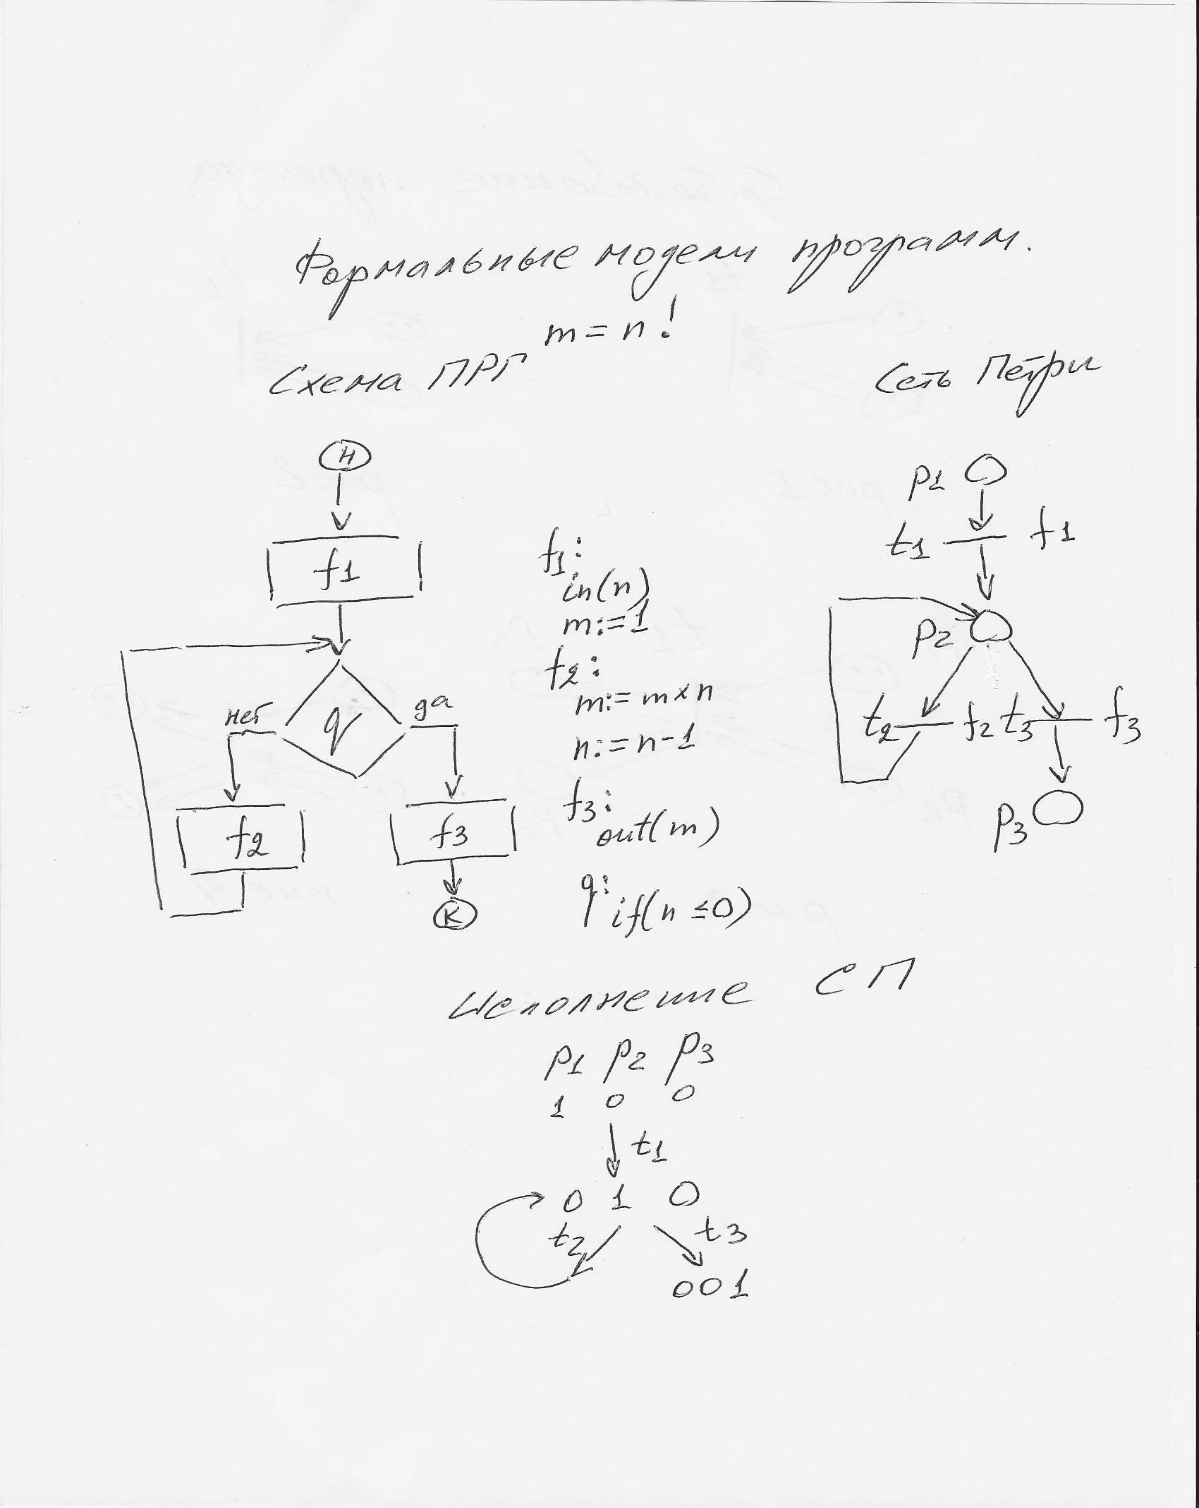 Формальные модели программ.
m = n!
Схема ПРГ
Сеть Петри
н
f1
q
нет
да
f2
f3
к
f1:
in(n)
m:=1
f2:
m:= m x n
n:= n-1
f3:
out(m)
q:
if(n ≤ 0)
p1
t1 f1
p2
t2 f2 t3 f3
p3
Исполнение СП
p1 p2 p3
1 0 0
t1
0 1 0
t2 t3
001